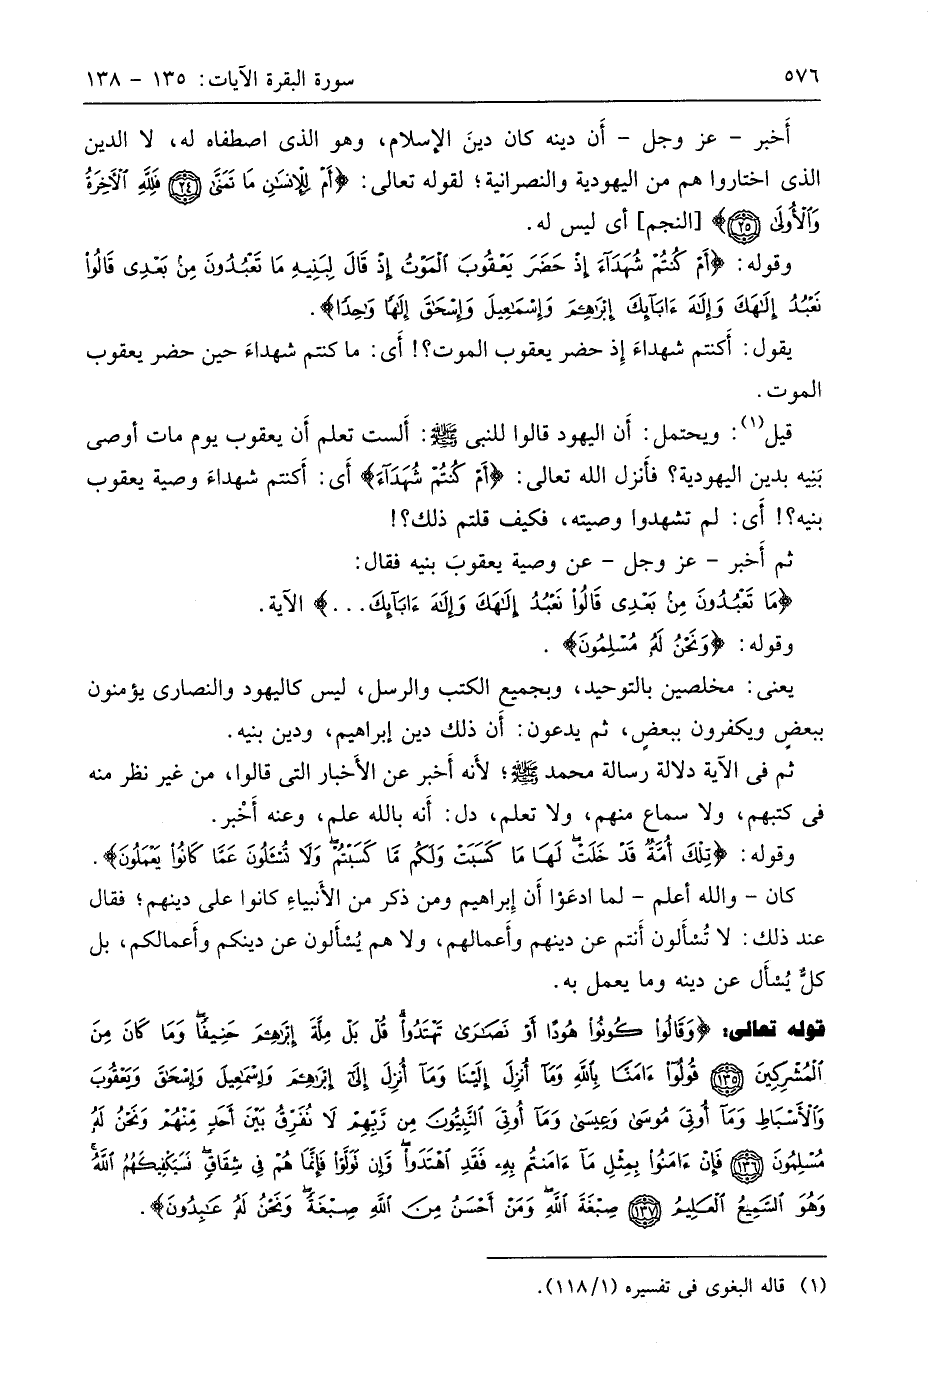 ٥٧٦ سورة البقرة الآيات: ١٣٥ - ١٣٨
أَخبر - عز وجل - أَن دينه كان دينَ الإسلام، وهو الذى اصطفاه له، لا الدين
الذى اختاروا هم من اليهودية والنصرانية؛ لقوله تعالى: ﴿أَمْ لِلْإِنسَٰنِ مَا تَمَنَّىٰ ﴿٢٤﴾ فَلِلَّهِ ٱلْآخِرَةُ
وَٱلْأُولَىٰ ﴿٢٥﴾﴾ [النجم] أى ليس له.
وقوله: ﴿أَمْ كُنتُمْ شُهَدَآءَ إِذْ حَضَرَ يَعْقُوبَ ٱلْمَوْتُ إِذْ قَالَ لِبَنِيهِ مَا تَعْبُدُونَ مِنۢ بَعْدِى قَالُوا۟
نَعْبُدُ إِلَٰهَكَ وَإِلَٰهَ ءَابَآئِكَ إِبْرَٰهِۦمَ وَإِسْمَٰعِيلَ وَإِسْحَٰقَ إِلَٰهًا وَٰحِدًا﴾.
يقول: أَكنتم شهداءَ إذ حضر يعقوب الموت؟! أى: ما كنتم شهداءَ حين حضر يعقوب
الموت.
قيل(١): ويحتمل: أَن اليهود قالوا للنبى ﷺ: أَلست تعلم أَن يعقوب يوم مات أوصى
بَنِيه بدين اليهودية؟ فأَنزل الله تعالى: ﴿أَمْ كُنتُمْ شُهَدَآءَ﴾ أى: أكنتم شهداءَ وصية يعقوب
بنيه؟! أَى: لم تشهدوا وصيته، فكيف قلتم ذلك؟!
ثم أَخبر - عز وجل - عن وصية يعقوبَ بنيه فقال:
﴿مَا تَعْبُدُونَ مِنۢ بَعْدِى قَالُوا۟ نَعْبُدُ إِلَٰهَكَ وَإِلَٰهَ ءَابَآئِكَ...﴾ الآية.
وقوله: ﴿وَنَحْنُ لَهُۥ مُسْلِمُونَ﴾.
يعنى: مخلصين بالتوحيد، وبجميع الكتب والرسل، ليس كاليهود والنصارى يؤمنون
ببعضٍ ويكفرون ببعضٍ، ثم يدعون: أَن ذلك دين إبراهيم، ودين بنيه.
ثم فى الآية دلالة رسالة محمد ﷺ؛ لأنه أَخبر عن الأخبار التى قالوا، من غير نظر منه
فى كتبهم، ولا سماع منهم، ولا تعلم، دل: أَنه بالله علم، وعنه أَخْبر.
وقوله: ﴿تِلْكَ أُمَّةٌ قَدْ خَلَتْ ۖ لَهَا مَا كَسَبَتْ وَلَكُم مَّا كَسَبْتُمْ ۖ وَلَا تُسْـَٔلُونَ عَمَّا كَانُوا۟ يَعْمَلُونَ﴾.
كان - والله أعلم - لما ادعَوْا أَن إبراهيم ومن ذكر من الأنبياءِ كانوا على دينهم؛ فقال
عند ذلك: لا تُسْأَلون أَنتم عن دينهم وأَعمالهم، ولا هم يُسْأَلون عن دينكم وأَعمالكم، بل
كلٌّ يُسْأَل عن دينه وما يعمل به.
قوله تعالى: ﴿وَقَالُوا۟ كُونُوا۟ هُودًا أَوْ نَصَٰرَىٰ تَهْتَدُوا۟ ۗ قُلْ بَلْ مِلَّةَ إِبْرَٰهِۦمَ حَنِيفًا ۖ وَمَا كَانَ مِنَ
ٱلْمُشْرِكِينَ ﴿١٣٥﴾ قُولُوٓا۟ ءَامَنَّا بِٱللَّهِ وَمَآ أُنزِلَ إِلَيْنَا وَمَآ أُنزِلَ إِلَىٰٓ إِبْرَٰهِۦمَ وَإِسْمَٰعِيلَ وَإِسْحَٰقَ وَيَعْقُوبَ
وَٱلْأَسْبَاطِ وَمَآ أُوتِىَ مُوسَىٰ وَعِيسَىٰ وَمَآ أُوتِىَ ٱلنَّبِيُّونَ مِن رَّبِّهِمْ لَا نُفَرِّقُ بَيْنَ أَحَدٍ مِّنْهُمْ وَنَحْنُ لَهُۥ
مُسْلِمُونَ ﴿١٣٦﴾ فَإِنْ ءَامَنُوا۟ بِمِثْلِ مَآ ءَامَنتُم بِهِۦ فَقَدِ ٱهْتَدَوا۟ ۖ وَّإِن تَوَلَّوْا۟ فَإِنَّمَا هُمْ فِى شِقَاقٍ ۖ فَسَيَكْفِيكَهُمُ ٱللَّهُ ۚ
وَهُوَ ٱلسَّمِيعُ ٱلْعَلِيمُ ﴿١٣٧﴾ صِبْغَةَ ٱللَّهِ ۖ وَمَنْ أَحْسَنُ مِنَ ٱللَّهِ صِبْغَةً ۖ وَنَحْنُ لَهُۥ عَٰبِدُونَ﴾.
(١) قاله البغوى فى تفسيره (١١٨/١).